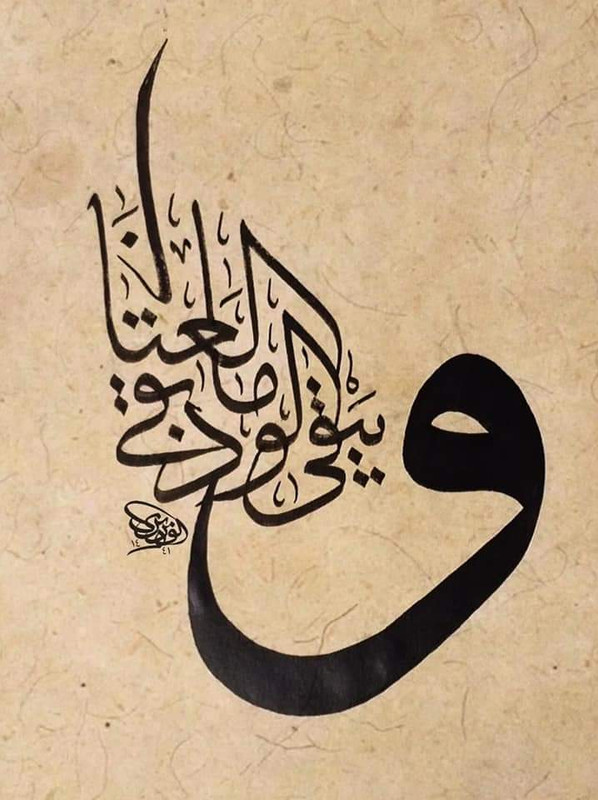 ويبقى الود ما بقي العتاب
١٤ ٤١